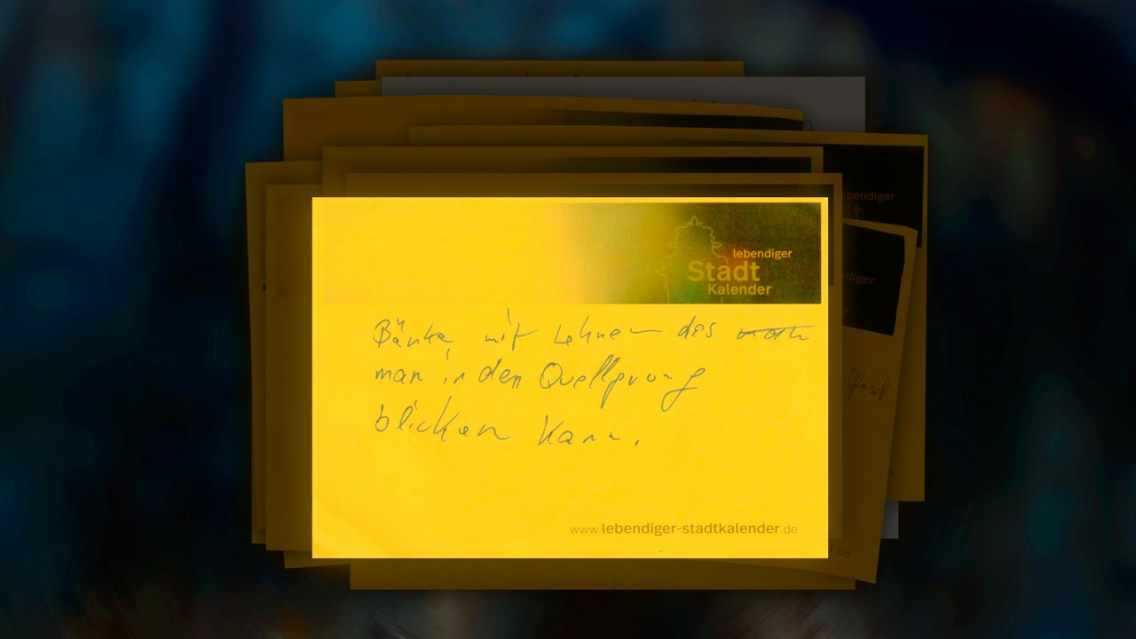 lebendiger
Stadt
Kalender
Bänke mit Lehnen das
man in den Quellprung
blicken kann.
www.lebendiger-stadtkalender.de